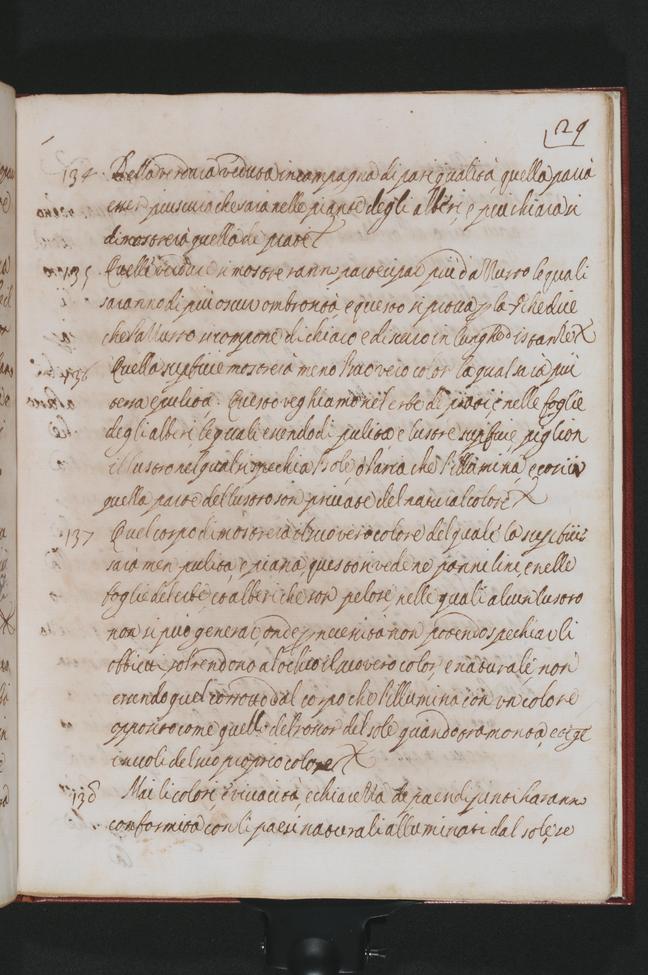 29
134 Della verdura veduta in campagna di pari qualità quella parrà
esser piu scura che sarà nelle piante degli alberi, e piu chiara si
dimostrerà quella de prati
135 Quelle verdure si mostreranno partecipar più d'Allusro le quali
saranno di più oscur ombrosità e questo si prova p la che dice
che l'allusro si compone di chiaro e di scuro in lunghe distantie
136 Quella supficie mostrerà meno il suo vero color la qual sarà più
tersa e pulita. Questo veghiamo nel erbe di prati, e nelle foglie
degli alberi, le quali essendo di pulita e lustre supficie, piglion
il lustro nel qual si specchia l sole, ò l'aria che l'illumina, e così in
quella parte del lustro son private del natural colore
137 Quel corpo dimostrerà il suo vero colore del quale la supficie
sarà men pulita, e piana, questo si vede ne panni lini, e nelle
foglie del'erbe, et alberi che son pelose, nelle quali alcun lustro
non si può generar, onde p necessità non potendo specchiar li
obbietti sol rendono a l'ochio il suo vero color, e naturale non
essendo quel corrotto dal corpo che l'illumina con un colore
opposito come quello del rossor del sole quando tramonta, e tige
i nuvoli del suo proprio colore
138 Mai li colori, e vivacità, e chiarezza de paesi dipinti haranno
conformità con li paesi naturali alluminati dal sole, se